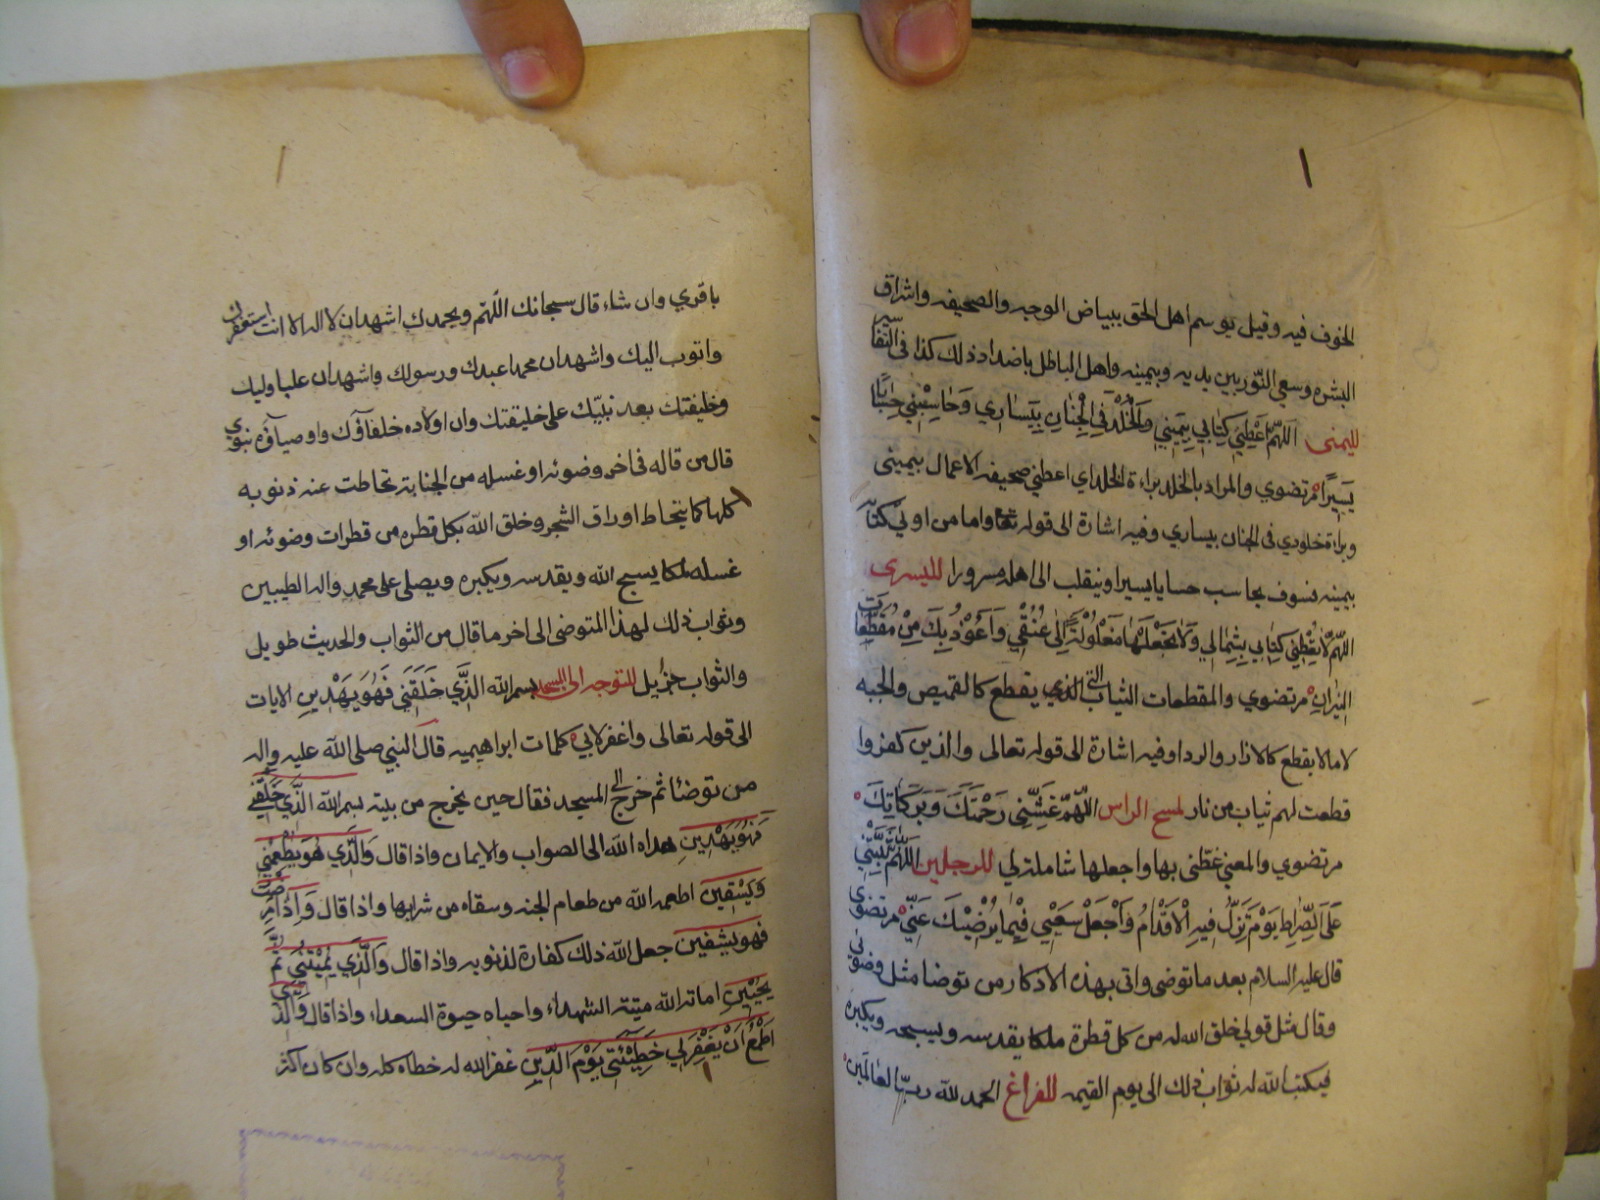 الخوف فيه وقيل يوسم اهل الحق ببياض الوجه والصحيفه واشراق
البشره وسعي النّور بين يديه وبيمينه واهل الباطل باضداد ذلك كذا في التفاسير
لليمنى اللهمّ اَعْطِنِي كِتابي بِيَميني وَالخُلْدَ فِي الْجِنانِ بِيَساري وَحاسِبْني حِسابًا
يَسيرًا مرتضوي والمراد بالخلد براءة الخلد اي اعطني صحيفه الاعمال بيميني
وبراءة خلودي في الجنان بيساري وفيه اشارة الى قوله تعا واما من اوتي كتابه
بيمينه فسوف يحاسب حسابا يسيرا وينقلب الى اهله مسرورا لليسرى
اللهمّ لاتُعْطِني كِتابي بِشِمالي وَلاتَجْعَلْها مَغْلُولَةً اِلى عُنُقي وَاَعُوْذُ بِكَ مِنْ مُقَطَّعاتِ
النيرانِ مرتضوي والمقطعات الثياب التي يقطع كالقميص والجبه
لا مالا يقطع كالازار والردا وفيه اشارة الى قوله تعالى والذين كفروا
قطعت لهم ثياب من نار لمسح الراس اللّهمّ غَشِّني رَحْمَتَكَ وَبَرَكاتِكَ
مرتضوي والمعني غطّني بها واجعلها شاملة لي للرجلين اللهمّ ثَبِّتْني
عَلَى الصِّراطِ يَوْمَ تَزِلُّ فيهِ الْاَقْدامُ وَاجْعَلْ سَعْيي فيما يُرْضيْكَ عَنّي مرتضوي
قال عليه السلام بعد ما توضى واتى بهذه الاذكار من توضا مثل وضوئي
وقال مثل قولي خلق الله له من كل قطرة ملكا يقدسه ويسبحه ويكبره
فيكتب الله له ثواب ذلك الى يوم القيمه للفراغ الحمد لله ربّ العالَمين
باقري وان شاء قال سبحانك اللّهمّ وبحمدك اشهد ان لا اله الا انت استغفرك
واتوب اليك واشهد ان محمدا عبدك ورسولك واشهد ان عليا وليك
وخليفتك بعد نبيّك على خليقتك وان اولاده خلفاؤك واوصياؤه نبوي
قال من قاله في اخر وضوئه او غسله من الجنابة تحاطت عنه ذنوبه
كلها كما يتحاط اوراق الشجر وخلق الله بكل قطره من قطرات وضوئه او
غسله ملكا يسبح الله ويقدسه ويكبره ويصلى على محمد واله الطيبين
وثواب ذلك لهذا المتوضى الى اخر ما قال من الثواب والحديث طويل
والثواب جزيل للتوجه الى المسجد بسم الله الَّذي خَلَقَني فَهُوَ يَهْدينِ الايات
الى قوله تعالى واغفر لابي كلمات ابراهيميه قال النبي صلى الله عليه واله
من توضا ثم خرج الى المسجد فقال حين يخرج من بيته بسم الله الَّذي خَلَقَني
فَهُوَ يَهْدينِ هداه الله الى الصواب والايمان واذا قال وَالَّذي هُوَ يُطْعِمُني
وَيَسْقينِ اطعمه الله من طعام الجنه وسقاه من شرابها واذا قال وَاِذا مَرِضْتُ
فهو يشفين جعل الله ذلك كفارة لذنوبه واذا قال وَالَّذي يُميْتُني ثُمَّ
يُحْيينِ اماته الله ميتة الشهداء واحياه حيوة السعداء واذا قال وَالَّذي
اَطْمَعُ اَنْ يَغْفِرَ لي خَطيْئَتي يَوْمَ الدِّينِ غفر الله له خطاه كله وان كان اكثر